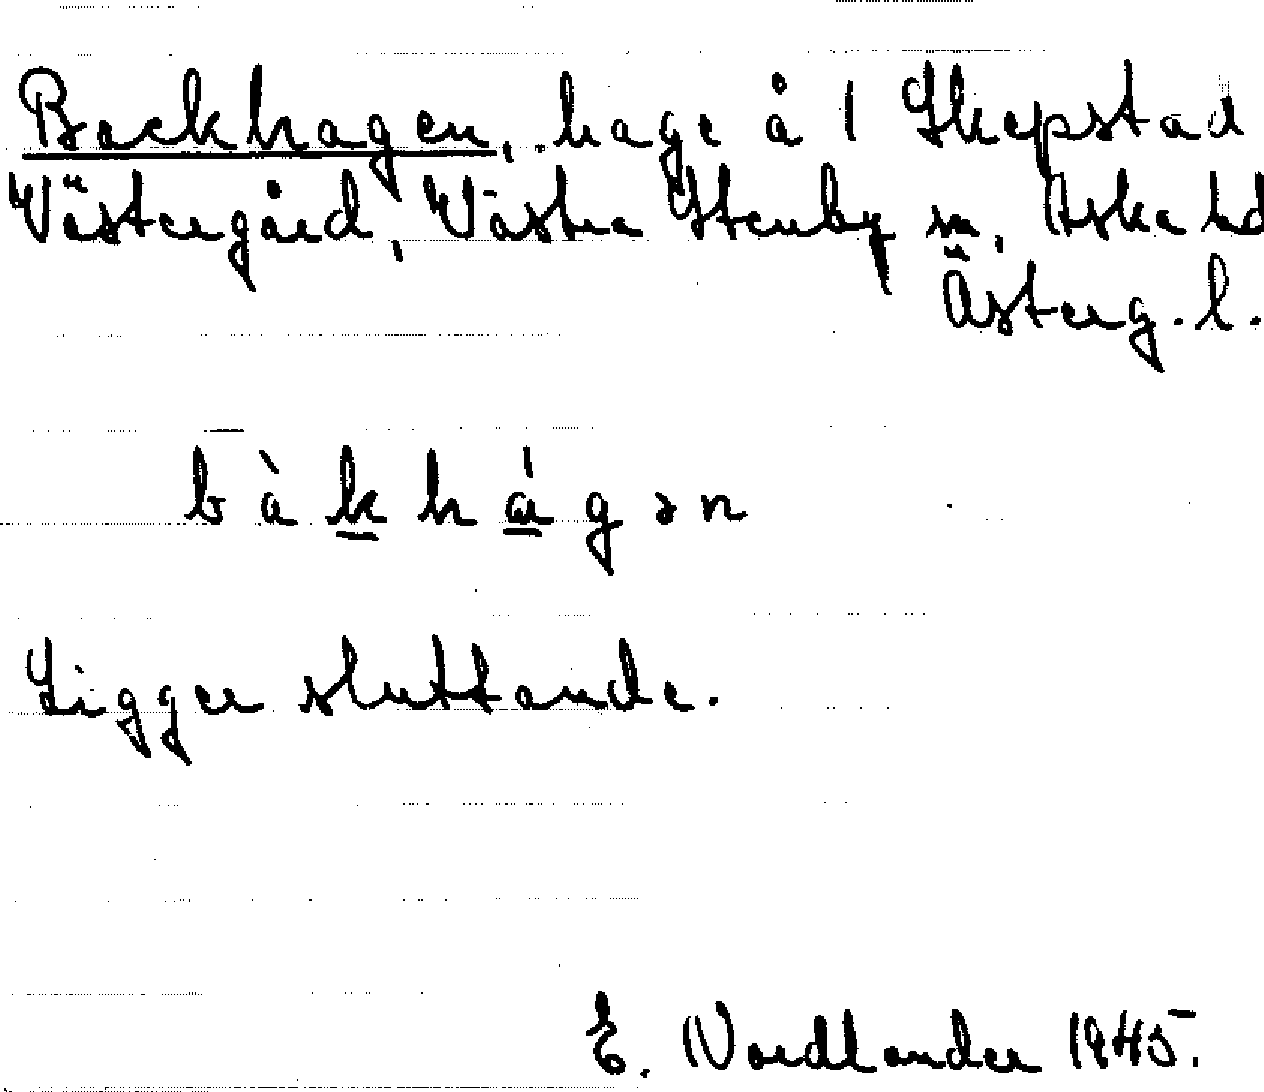 Backhagen, hage å 1 Skepstad
Västergård, Västra Stenby sn, Aska hd
Österg. l.
bàkhágən
Ligger sluttande.
E. Nordlander 1945.